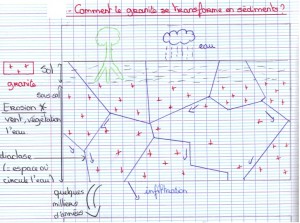 - Comment le granite se transforme en sédiments ?
eau
granite
Sol
sous sol
Erosion *
vent, végétation
l'eau
diaclase
(= espace où
circule l'eau)
quelques
millions
d'années
infiltration